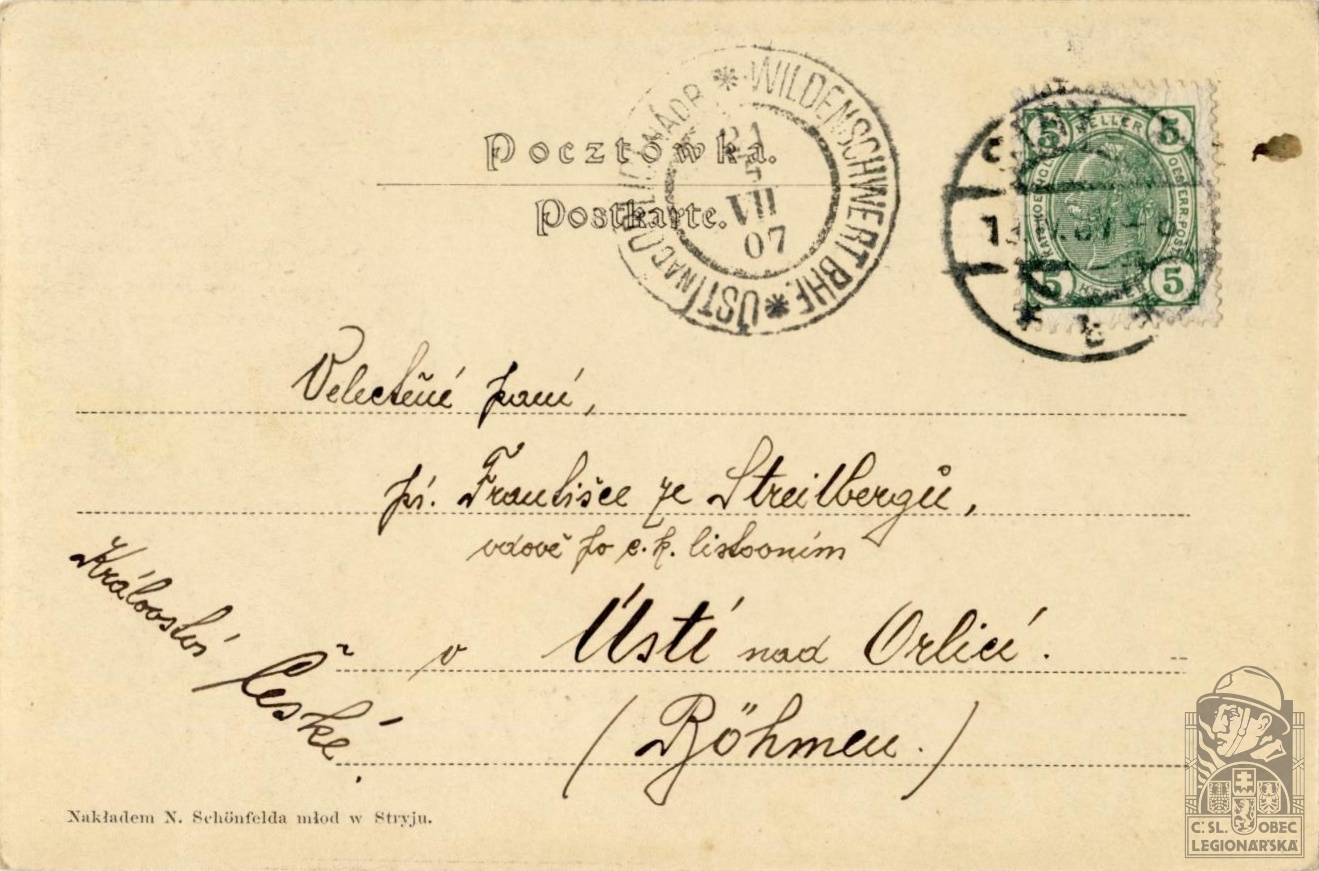 Pocztówka.
Postkarte.
* WILDENSCHWERT BHF. * ÚSTÍ NAD ORLICÍ NÁDR.
VII
07
5 HELLER 5
5 HELLER 5
Velectěné paní,
pí. Františce ze Streitbergů,
vdově po c. k. listovním
v Ústí nad Orlicí.
(Böhmen.)
Království
České.
Nakładem N. Schönfelda młod w Stryju.
Č. SL. OBEC
LEGIONÁŘSKÁ